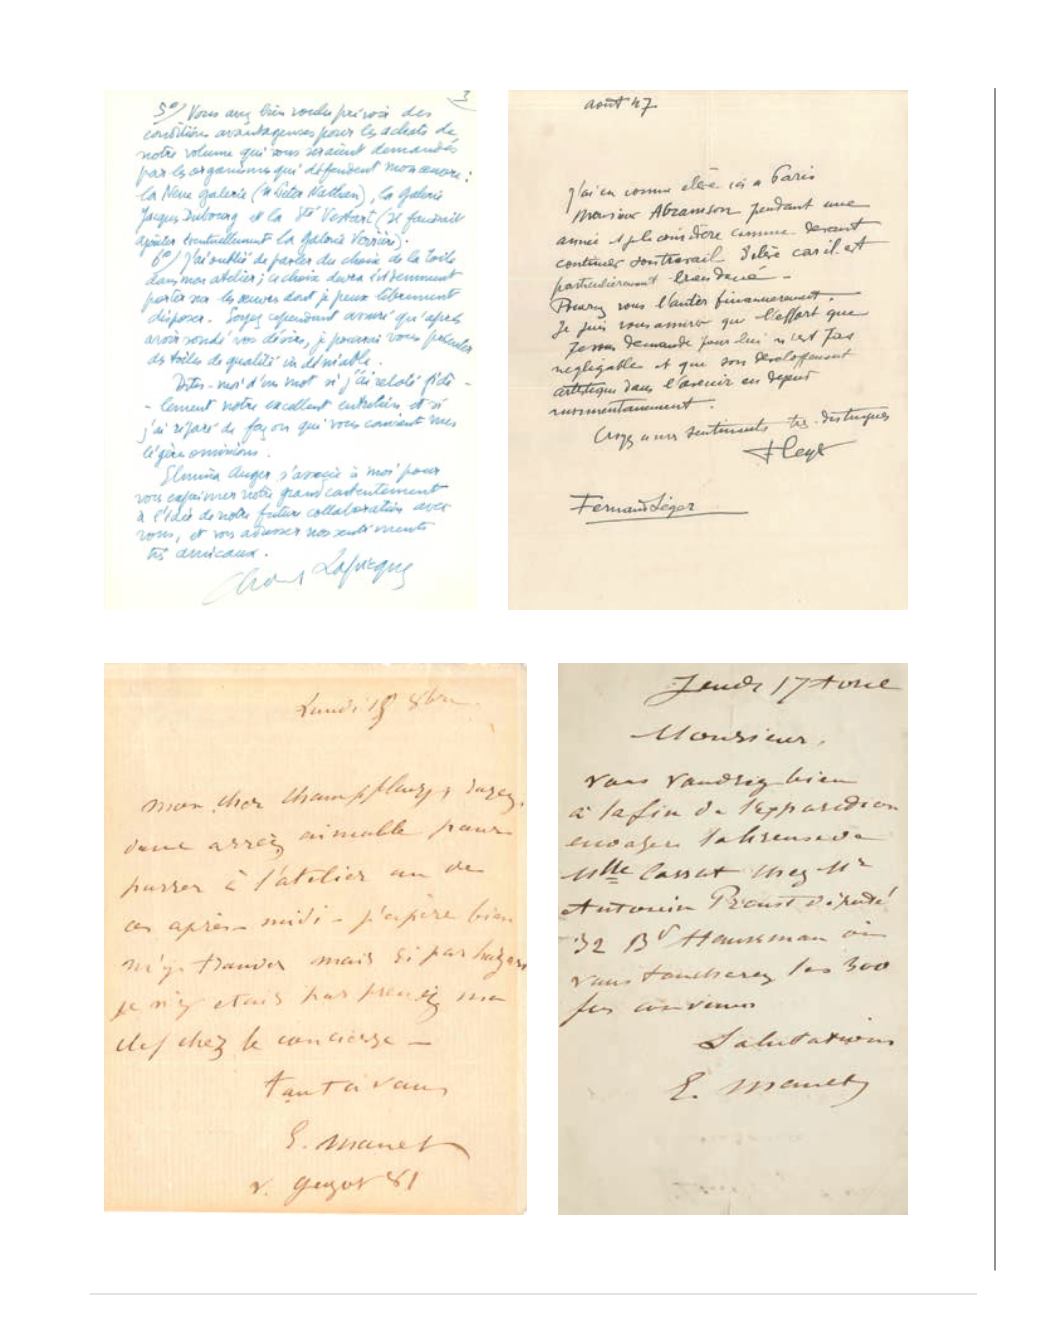 3
5°/ Vous avez bien voulu prévoir des
conditions avantageuses pour les achats de
notre volume qui vous seraient demandés
par les organismes qui défendent mon œuvre :
la Neue Galerie (M. Peter Nathan), la Galerie
Jacques Dubourg et la Sté Ver (Il faudrait
ajouter éventuellement la Galerie Verrière).
6°/ J'ai oublié de parler du choix de la toile
dans mon atelier ; ce choix devra évidemment
porter sur les œuvres dont je peux librement
disposer. Soyez cependant assuré qu'après
avoir sondé vos désirs, je pourrai vous présenter
des toiles de qualité indéniable.
Dites-moi d'un mot si j'ai relaté fidè-
-lement notre excellent entretien, et si
j'ai réparé de façon qui vous convient mes
légères omissions.
Elmina Auger s'associe à moi pour
vous exprimer notre grand contentement
à l'idée de notre future collaboration avec
vous, et vous adresser nos sentiments
très amicaux.
Charles Lapicque
août 47
J'ai eu comme élève ici a Paris
Monsieur Abramson pendant une
année et je le considère comme devant
continuer son travail d'élève car il est
particulièrement bien doué –
Pourrez vous l'aider financierement.
Je puis vous assurer que l'effort que
je vous demande pour lui n'est pas
negligable et que son developpement
artistique dans l'avenir en depend
momentanement.
Croyez a mes sentiments très distingués
FLeger
Fernand Léger
Lundi 8bre
mon cher Champfleury, soyez
donc assez aimable pour
passer à l'atelier un de
ces après-midi – j'espère bien
m'y trouver mais si par hazard
je n'y etais pas prenez ma
clef chez le concierge –
tout à vous
E. Manet
r. Guyot 81
Jeudi 17 Avril
Monsieur,
vous voudrez bien
à la fin de l'exposition
envoyer la de
Mlle Cassat chez Mr
Antonin Proust député
32 Bd Haussman où
vous toucherez les 300
frs convenus
Salutations
E. Manet